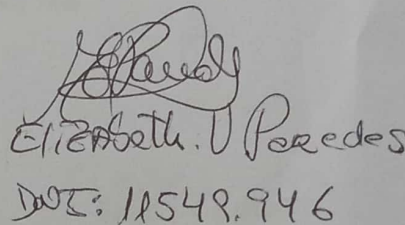 Elizabeth. V Paredes
DNI: 11549.946